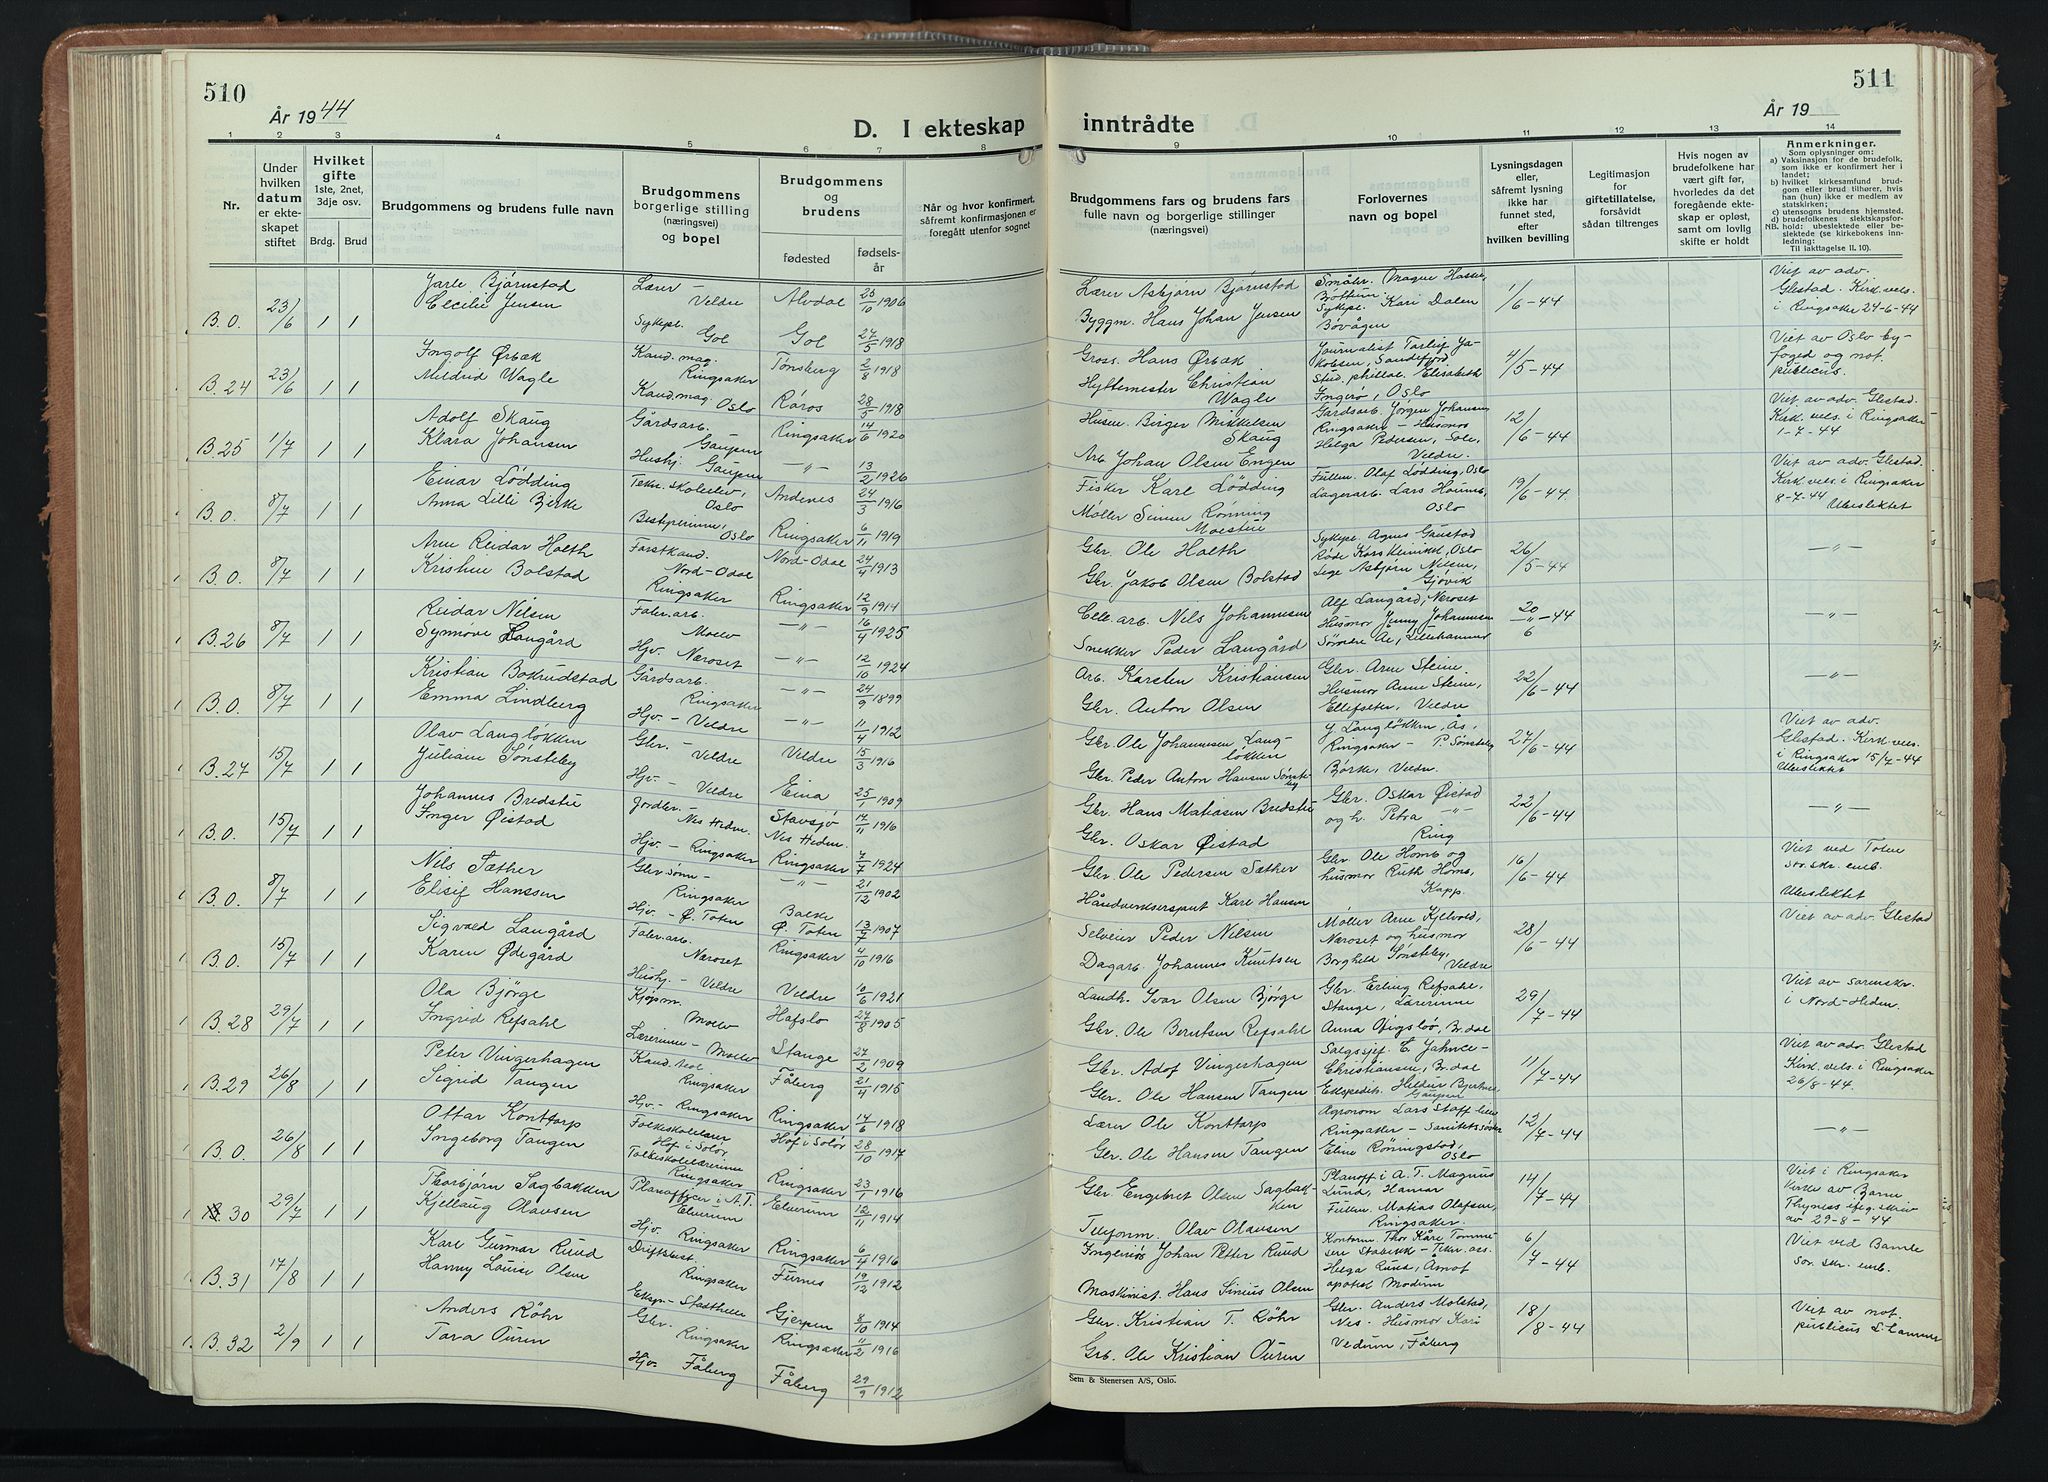 510
År 1944
D. I ekteskap
1 2 3 4 5 6 7 8
Nr.
Under hvilken datum er ekteskapet stiftet
Hvilket gifte 1ste, 2net, 3dje osv.
Brdg. Brud
Brudgommens og brudens fulle navn
Brudgommens borgerlige stilling (næringsvei) og bopel
Brudgommens og brudens
fødested
fødselsår
Når og hvor konfirmert, såfremt konfirmasjonen er foregått utenfor sognet
B.0. 23/6 1 1
Jarle Bjørnstad Lærer - Veldre Alvdal 23/10 1906
Cecilie Jensen Sykepl. Gol Gol 27/5 1918
B.24 23/6 1 1
Ingolf Ørbæk Kand. mag. Ringsaker Tønsberg 2/8 1918
Meldrid Wagle Kand. mag. Oslo Røros 28/5 1918
B.25 1/7 1 1
Adolf Skaug Gårdsarb. Gaupen Ringsaker 14/6 1920
Klara Johansen Hushj. Gaupen -"- 13/2 1926
B.0. 8/7 1 1
Einar Lødding Tekn. skoleelev, Oslo Andenes 24/3 1916
Anna Lilli Bjerke Oslo Ringsaker 6/11 1919
B.0. 8/7 1 1
Arne Reidar Holth Forstkand. Nord-Odal Nord-Odal 24/4 1913
Bolstad Ringsaker Ringsaker 12/9 1914
B.26 8/7 1 1
Reidar Nilsen Moelv -"- 16/4 1925
Synnøve Langård Hjv. Næroset -"- 12/10 1924
B.0. 8/7 1 1
Kristian Bokrudstad Gårdsarb. Ringsaker -"- 24/9 1899
Emma Lindberg Hjv. - Veldre -"- 11/4 1912
B.27 15/7 1 1
Olav Langløkken Gbr. - Veldre Veldre 15/3 1916
Juliane Sønsteby Hjv. - Veldre Eina 25/1 1909
B.0. 15/7 1 1
Johannes Bredstu Jordbr. - Nes Hedm. Stavsjø Nes Hedm. 17/11 1916
Inger Øistad Hjv. - Ringsaker Ringsaker 7/7 1924
B.0. 8/7 1 1
Nils Sæther Gbr sønn - Ringsaker -"- 21/12 1902
Elisif Hanssen Hjv. - Ø. Toten Balke Ø. Toten 13/7 1907
B.0. 15/7 1 1
Sigvald Langård Næroset Ringsaker 4/10 1916
Karen Ødegård Hushj. - Veldre Veldre 10/6 1921
B.28 29/7 1 1
Ola Bjørge Kjøpm. Moelv Hafslo 27/8 1905
Ingrid Refsahl Lærerinne - Moelv Stange 27/2 1909
B.29 26/8 1 1
Peter Vingerhagen Kand. teol Ringsaker Fåberg 21/4 1915
Sigrid Tangen Hjv. - Ringsaker Ringsaker 14/6 1918
B.0. 26/8 1 1
Ottar Konttorp Folkeskolelærer Hof i Solør Hof i Solør 28/10 1917
Ingeborg Tangen Folkeskolelærerinne Ringsaker Ringsaker 23/1 1916
30 29/7 1 1
Thorbjørn Sagbakken Planoffiser i A.T. Elverum Elverum 12/11 1914
Kjellaug Olavsen Hjv. Ringsaker Ringsaker 6/4 1916
B.31 17/8 1 1
Karl Gunnar Ruud Driftsbest. Ringsaker Furnes 19/12 1912
Hanny Louise Olsen Eksp. - Stathelle Gjerpen 8/10 1914
B.32 2/9 1 1
Anders Röhr Gbr. Ringsaker Ringsaker 11/2 1916
Tara Ouren Hjv. Fåberg Fåberg 29/9 1912
511
År 19
inntrådte
9 10 11 12 13 14
Brudgommens fars og brudens fars fulle navn og borgerlige stillinger (næringsvei)
Forlovernes navn og bopel
Lysningsdagen eller, såfremt lysning ikke har funnet sted, efter hvilken bevilling
Legitimasjon for giftetillatelse, forsåvidt sådan tiltrenges
Hvis nogen av brudefolkene har vært gift før, hvorledes da det foregående ekteskap er opløst, samt om lovlig skifte er holdt
Anmerkninger.
Som oplysninger om:
a) Vaksinasjon for de brudefolk, som ikke er konfirmert her i landet;
b) hvilket kirkesamfund brudgom eller brud tilhører, hvis han (hun) ikke er medlem av statskirken;
c) utensogns brudens hjemsted.
d) brudefolkenes slektskapsforhold: ubeslektede eller beslektede (se kirkebokens innledning:
NB. Til iakttagelse II. 10).
Lærer Asbjørn Bjørnstad Småbr. Magne
Byggm. Hans Johan Jensen Sykepl. Kari Dalen Bøvågen 1/6-44
Viet av adv. Glestad. Kirk. vels. i Ringsaker 24-6-44
Gross. Hans Ørbæk Journalist Jakobsen, Sandefjord
Hyttemester Christian Wagle Stud. philol. Elisabeth Oslo 4/5-44
Viet av Oslo byfoged og not. publicus.
Husm. Birger Mikkelsen Skaug Gårdsarb. Jørgen Johansen Ringsaker - Husmor
Arb. Johan Olsen Engen Helga Pedersen, Veldre. 12/6-44
Viet av adv. Glestad. Kirk. vels. i Ringsaker 1-7-44
Fisker Karl Lødding Fullm. Olaf Lødding, Oslo
Møller Simen Rønning Moestue Lagerarb. Lars Oslo 19/6-44
Viet av adv. Glestad. Kirk. vels. i Ringsaker 8-7-44 Ubeslektet
Gbr. Ole Holth Sykepl. Agnes Gaustad Røde Kors klinikk, Oslo
Gbr. Jakob Olsen Bolstad Lege Asbjørn Nilsen, Gjøvik 26/5-44 -"-
Cell.arb. Nels Johannesen Alf Langård, Næroset
Snekker Peder Langård Husmor Jenny Johannesen Søndre Ål, Lillehammer 20/6-44 -"-
Arb. Karsten Kristiansen Gbr. Arne Steine
Gbr. Anton Olsen Husmor Anne Steine, Ellefseter, Veldre 22/6-44 -"-
Gbr Ole Johannesen Langløkken Langløkken, Ås, Ringsaker - P. Sønsteby
Gbr. Peder Anton Hansen Sønsteby Bjørke, Veldre. 27/6-44
Viet av adv. Glestad. Kirk. vels. i Ringsaker 15/7-44 Ubeslektet
Gbr. Hans Matiasen Bredstu Gbr. Oskar Øistad
Gbr. Oskar Øistad og h. Petra -"- Ring 22/6-44 -"-
Gbr. Ole Pedersen Sæther Gbr. Ole Homb og
Håndverksersput Karl Hansen husmor Ruth Homb, Kapp. 16/6-44
Viet ved Toten sor. skr. emb. Ubeslektet
Selveier Peder Nilsen Møller Arne Kjelvold, Næroset og husmor
Dagarb. Johannes Knutsen Borghild Sønsteby, Veldre 28/6-44
Viet av adv. Glestad
Landh. Ivar Olsen Bjørge Gbr. Erling Refsahl, Stange, Lærerinne
Gbr. Ole Berntsen Refsahl Anna Br.dal 29/7-44
Viet av sorenskr. i Nord-Hedm.
Gbr. Adof Vingerhagen Salgssjef. E. Jahnce-Christiansen, Br.dal
Gbr. Ole Hansen Tangen Ekspedits. Heldur Bjertnes Gaupen 11/7-44
Viet av adv. Glestad Kirk. vels. i Ringsaker 26/8-44.
Lærer Ole Konttorp Agronom Lars Staff Ringsaker - Sanitetssøster
Gbr. Ole Hansen Tangen Eline Røningstad, Oslo 12/7-44 -"-
Gbr Engebret Olsen Sagbakken Planoff i A.T. Magnus Lund, Hamar
Telefonm. Olav Olavsen Fullm. Matias Olafsen, Ringsaker. 14/7-44
Viet i Ringsaker Kirke av Barne Thyness efeg. skriv av 29-8-44
Ingeniør Johan Petter Ruud Kontorm. Thor Kåre Stabekk - Tekn. ass.
Maskinist. Hans Sinius Olsen Helga Lund, Åmot apotek Modum 6/7-44
Viet ved Bamle Sor. skr. emb.
Gbr. Kristian T. Röhr Gbr. Anders Molstad, Nes. Husmor Kari
Grb. Ole Kristian Ouren Vedum, Fåberg 18/8-44
Viet av not. publicus L.hammer
Sem & Stenersen A/S, Oslo.